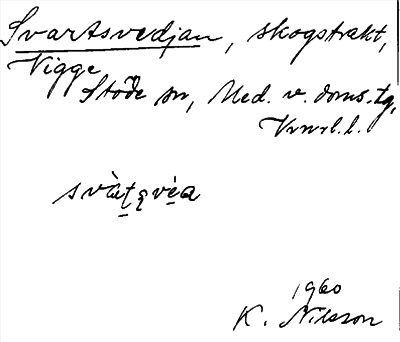 Svartsvedjan, skogstrakt,
Vigge
Stöde sn, Med. v. doms.tg,
Vrnrl.l.
svàt̠s̨vé̠a
1960
K. Nilsson